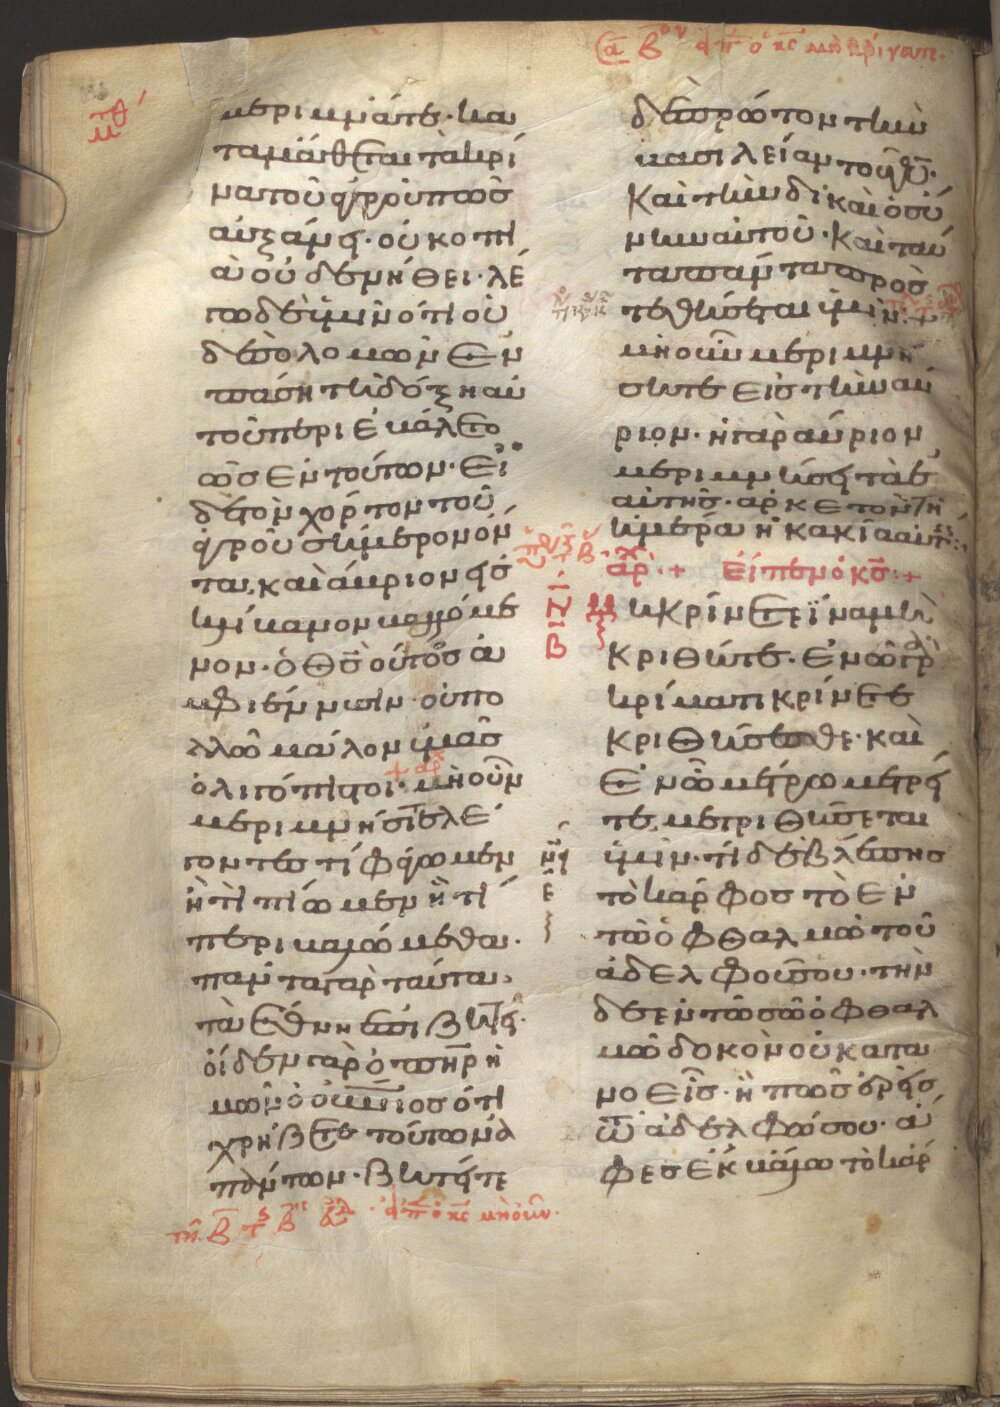 μεριμνάτε· κα
ταμάθεται τὰ κρί
να τοῦ ἀγροῦ πῶς
αὐξάνει· οὐ κοπι
ᾶ οὐδὲ νήθει· λέ
γω δὲ ὑμῖν ὅτι οὐ
δὲ σολομὼν ἐν
πάση τῆ δόξη αὐ
τοῦ περιεβάλετο
ὡς ἐν τούτων· Εἰ
δὲ τὸν χόρτον τοῦ
ἀγροῦ σήμερον ὄν
τα, καὶ αύριον εἰς
κλίβανον βαλλόμε
νον· ὁ θ̅ς̅ οὕτως ἀ
μφιέννυσιν· οὐ πο
λλῶ μᾶλλον ὑμᾶς
ὀλιγόπιστοι· μὴ οὖν
μεριμνήσητε λέ
γοντες τί φάγωμεν
ἢ τὶ πίωμεν ἢ τί
περιβαλώμεθα·
πάντα γὰρ ταύτα
τὰ ἔθνη ἐπιζητεῖ·
οἶδεν γὰρ ὁ π̅η̅ρ ἡ
μῶν ὁ οὐ̅ν̅ιος ὅτι
χρήζετε τούτων ἁ
πάντων· ζητεῖτε
τῆ β τς β · εἶπ ὁ κς μὴ οὖν·
β εἶπ ὁ κς μὴ κρίνετε·
δὲ πρῶτον τὴν
βασιλείαν τοῦ θ̅υ̅·
Καὶ τὴν δικαιοσύ
νην αὐτοῦ· Καὶ ταῦ
τα πάντα προσ
τεθήσεται ὑμῖν·+
μὴ οὖν μεριμνή
σητε εἰς τὴν αὔ
ριον· ἡ γὰρ αύριον
μεριμνήσει τὰ ἑ
αὐτῆς· ἀρκετὸν τῆ
ἡμέρα ἡ κακία αὐτῆς:
ἀρχ·+ Εἶπεν ὁ κ̅ς̅·+
Μὴ κρίνετε ἵνα μὴ
κριθῆτε· Ἐν ὧ γὰρ
κρίματι κρίνετε
κριθήσεσθε· καὶ
Ἐν ὧ μέτρω μετρεῖ
τε, μετριθήσεται
ὑμῖν· τί δὲ βλέπης
τὸ κάρφος τὸ ἐν
τῶ ὀφθαλμῶ τοῦ
ἀδελφοῦ σου· τὴν
δὲ ἐν τῶ σῶ ὀφθαλ
μῶ δοκὸν οὐ κατα
νοεῖς· ἢ πῶς ἐρεῖς
τῶ ἀδελφῶ σου· ἄ
φες ἐκβάλω τὸ κάρ